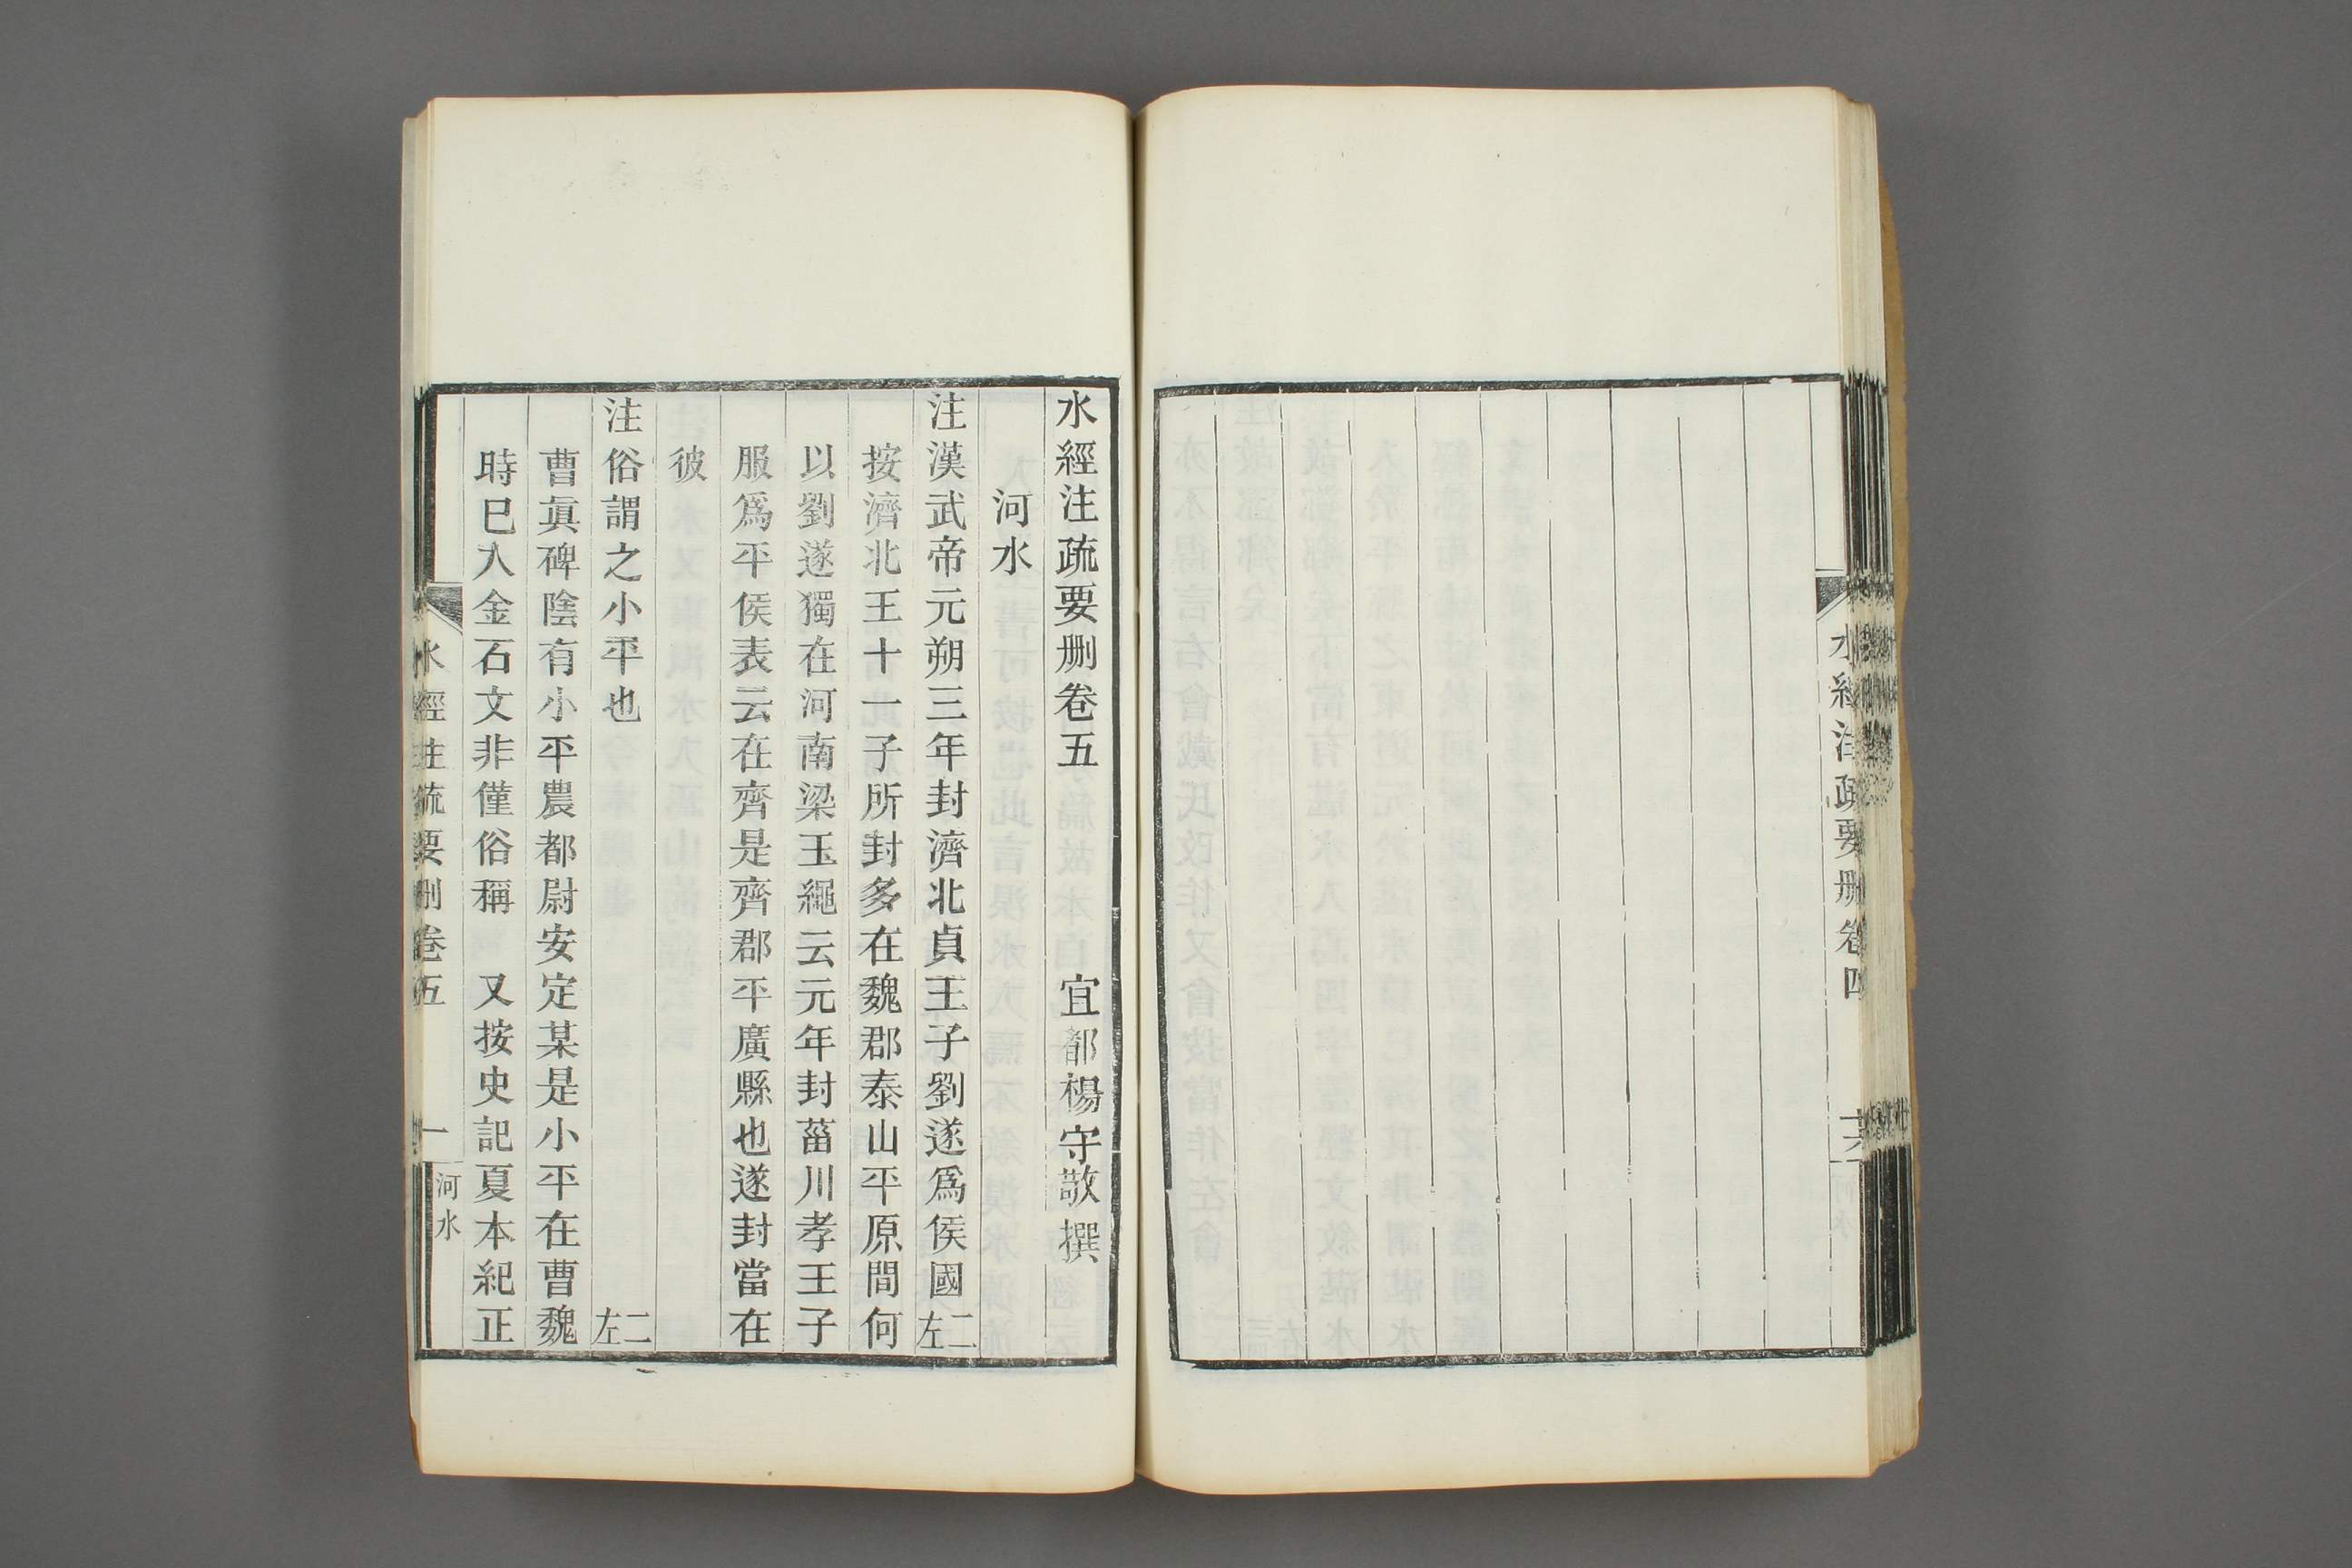 水經注疏要刪卷四
十六
水經注疏要刪卷五 宜都楊守敬撰
河水
注漢武帝元朔三年封濟北貞王子劉遂爲侯國二左
按濟北王十一子所封多在魏郡泰山平原間何
以劉遂獨在河南梁玉繩云元年封菑川孝王子
服爲平侯表云在齊是齊郡平廣縣也遂封當在
彼
注俗謂之小平也 二左
曹眞碑陰有小平農都尉安定某是小平在曹魏
時已入金石文非僅俗稱 又按史記夏本紀正
水經注疏要刪卷五
一
河水